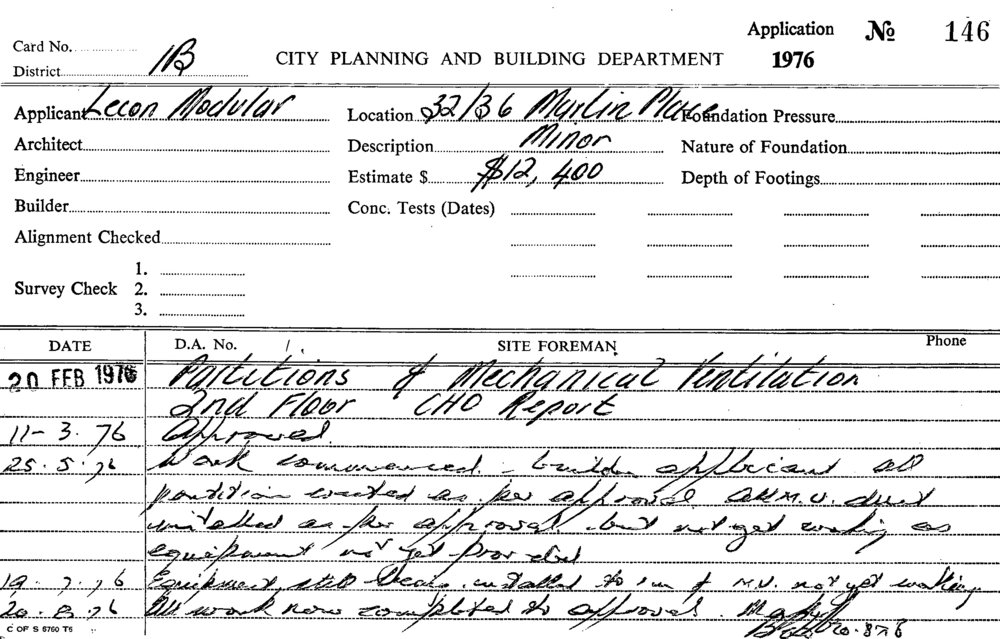 Application № 146
Card No.
District 1B
CITY PLANNING AND BUILDING DEPARTMENT 1976
Applicant Lecon Modular Location 32/36 Martin Place Foundation Pressure
Architect Description Minor Nature of Foundation
Engineer Estimate $ $12,400 Depth of Footings
Builder Conc. Tests (Dates)
Alignment Checked
1.
Survey Check 2.
3.
DATE D.A. No. SITE FOREMAN Phone
20 FEB 1976 Partitions & Mechanical Ventilation
2nd Floor CHO Report
11-3.76 Approved
25.5.76 Work commenced. - builder applicant all
partition erected as per approval all M.V. duct
installed as per approval. but not yet working as
equipment not yet provided
19.7.76 Equipment still being installed to & M.V. not yet working
20.8.76 All work now completed to approval.
20.8.76
C OF S 6760 T6